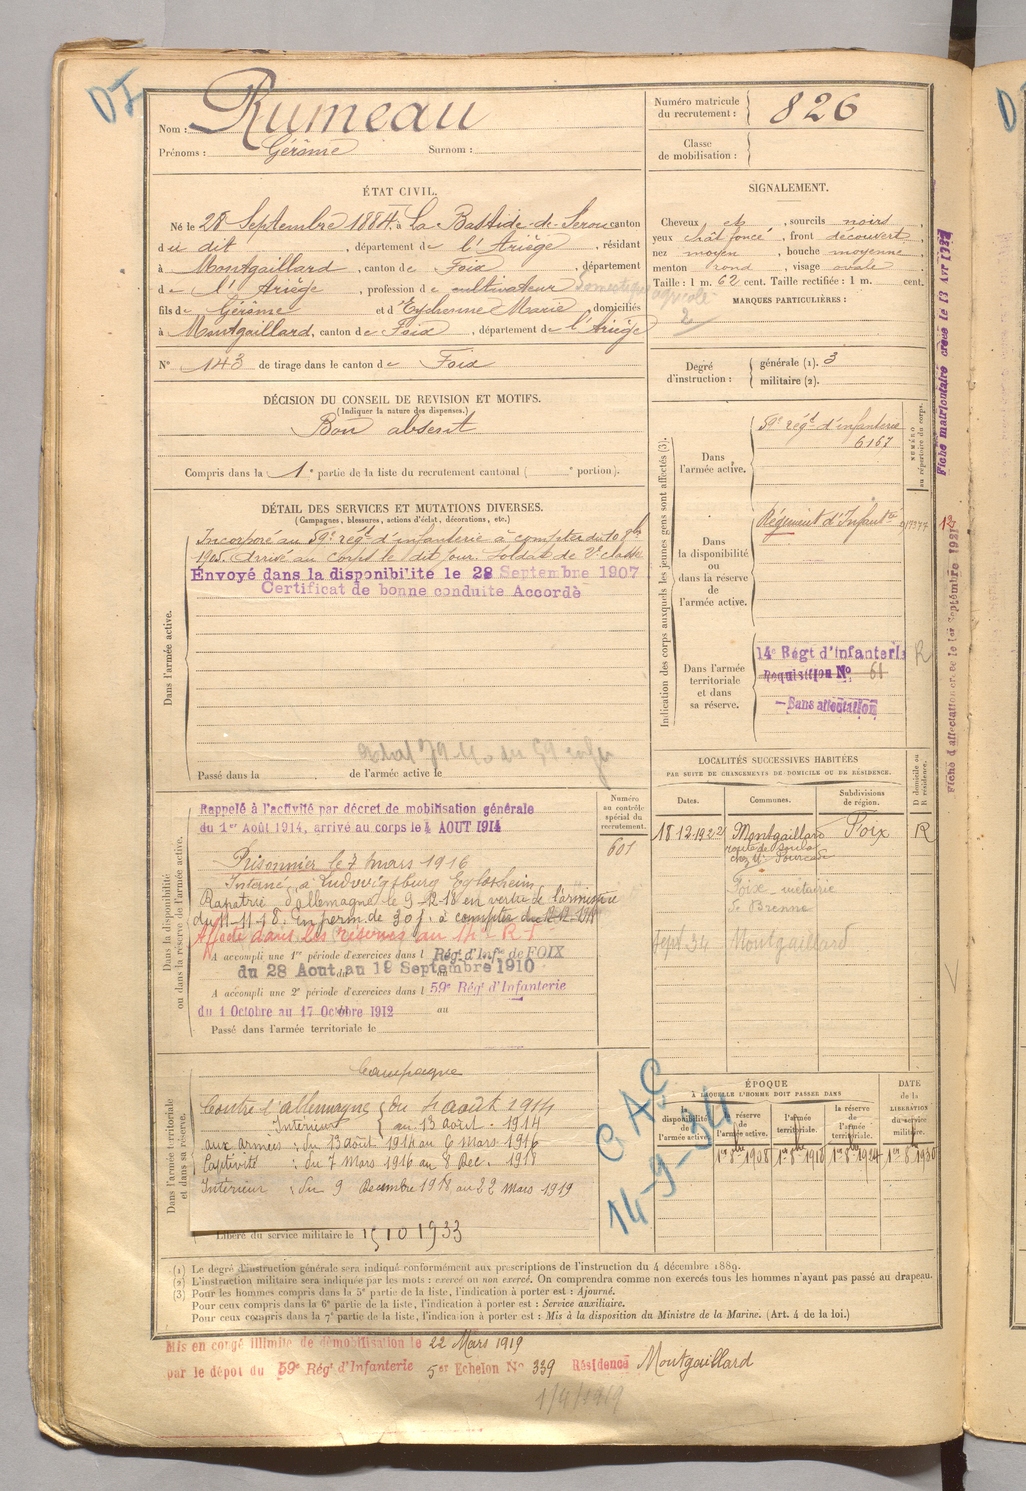 DI
Nom : Rumeau
Prénoms : Gérôme Surnom :
Numéro matricule du recrutement : 826
Classe de mobilisation :
ÉTAT CIVIL.
Né le 28 Septembre 1884 à La Bastide-de-Serou canton
du dit, département de l'Ariège, résidant
à Montgaillard, canton de Foix, département
de l'Ariège, profession de cultivateur domestique agricole
fils de Gérôme et d'Eychenne Marie, domiciliés
à Montgaillard, canton de Foix, département de l'Ariège
N° 143 de tirage dans le canton de Foix
SIGNALEMENT.
Cheveux et, sourcils noirs,
yeux chât foncé, front découvert,
nez moyen, bouche moyenne,
menton rond, visage ovale
Taille : 1 m. 62 cent. Taille rectifiée : 1 m. cent.
MARQUES PARTICULIÈRES :
2
Degré d'instruction : générale (1). 3
militaire (2).
DÉCISION DU CONSEIL DE REVISION ET MOTIFS.
(Indiquer la nature des dispenses.)
Bon absent
Compris dans la 1e partie de la liste du recrutement cantonal ( e portion).
DÉTAIL DES SERVICES ET MUTATIONS DIVERSES.
(Campagnes, blessures, actions d'éclat, décorations, etc.)
Dans l'armée active.
Incorporé au 59e régt d'infanterie à compter du 10 8bre
1905. Arrivé au corps le dit jour. Soldat de 2e classe
Envoyé dans la disponibilité le 28 Septembre 1907
Certificat de bonne conduite Accordé
Passé dans la de l'armée active le
Indication des corps auxquels les jeunes gens sont affectés (3).
NUMÉRO au répertoire du corps.
Dans l'armée active.
59e régt d'infanterie
6167
Dans la disponibilité ou dans la réserve de l'armée active.
Régiment d'Infantie
Dans l'armée territoriale et dans sa réserve.
14e Régt d'infanterie
Requisition No 61
R
Sans affectation
Fiche matriculaire créée le 13 Avr
Fiche d'affectation créée le 1er Septembre 1931
12
LOCALITÉS SUCCESSIVES HABITÉES
PAR SUITE DE CHANGEMENTS DE DOMICILE OU DE RÉSIDENCE.
D domicile ou R résidence.
Dates. Communes. Subdivisions de région.
18.12.1922 Montgaillard Foix R
route de
chez
Foix métairie
Sept 34 Montgaillard
Dans la disponibilité ou dans la réserve de l'armée active.
Numéro au contrôle spécial du recrutement.
601
Rappelé à l'activité par décret de mobilisation générale
du 1er Août 1914, arrivé au corps le 4 AOUT 1914
Prisonnier le 7 mars 1916
Interné à Ludwigsburg Eglosheim
Rapatrié d'allemagne le 9-12-18 en vertu de l'armistice
du 11-11-18. En perm. de 30 j. à compter du 12-12-1918
Affecté dans les réserves au 14e R.I.
A accompli une 1re période d'exercices dans l Régt d'Infie de FOIX
du 28 Aout au 19 Septembre 1910
A accompli une 2e période d'exercices dans l 59e Régt d'Infanterie
du 1 Octobre au 17 Octobre 1912 au
Passé dans l'armée territoriale le
Dans l'armée territoriale et dans sa réserve.
Campagne
Contre l'allemagne du 4 août 1914
Intérieur au 13 août 1914
aux armées : du 13 août 1914 au 6 Mars 1916
Captivité : du 7 Mars 1916 au 8 Dec. 1918
Intérieur : du 9 Decembre 1918 au 22 Mars 1919
Libéré du service militaire le 15 10 1933
14-9-34
ÉPOQUE
À LAQUELLE L'HOMME DOIT PASSER DANS
DATE de la LIBÉRATION du service militaire.
la disponibilité de l'armée active.
la réserve de l'armée active.
l'armée territoriale.
la réserve de l'armée territoriale.
1er 8bre 1908 1er 8bre 1918 1er 8bre 1924 1er 8bre 1930
(1) Le degré d'instruction générale sera indiqué conformément aux prescriptions de l'instruction du 4 décembre 1889.
(2) L'instruction militaire sera indiquée par les mots : exercé ou non exercé. On comprendra comme non exercés tous les hommes n'ayant pas passé au drapeau.
(3) Pour les hommes compris dans la 5e partie de la liste, l'indication à porter est : Ajourné.
Pour ceux compris dans la 6e partie de la liste, l'indication à porter est : Service auxiliaire.
Pour ceux compris dans la 7e partie de la liste, l'indication à porter est : Mis à la disposition du Ministre de la Marine. (Art. 4 de la loi.)
Mis en congé illimité de démobilisation le 22 Mars 1919
par le dépôt du 59e Régt d'Infanterie 5er Echelon No 339 Résidence Montgaillard
1/4/1919